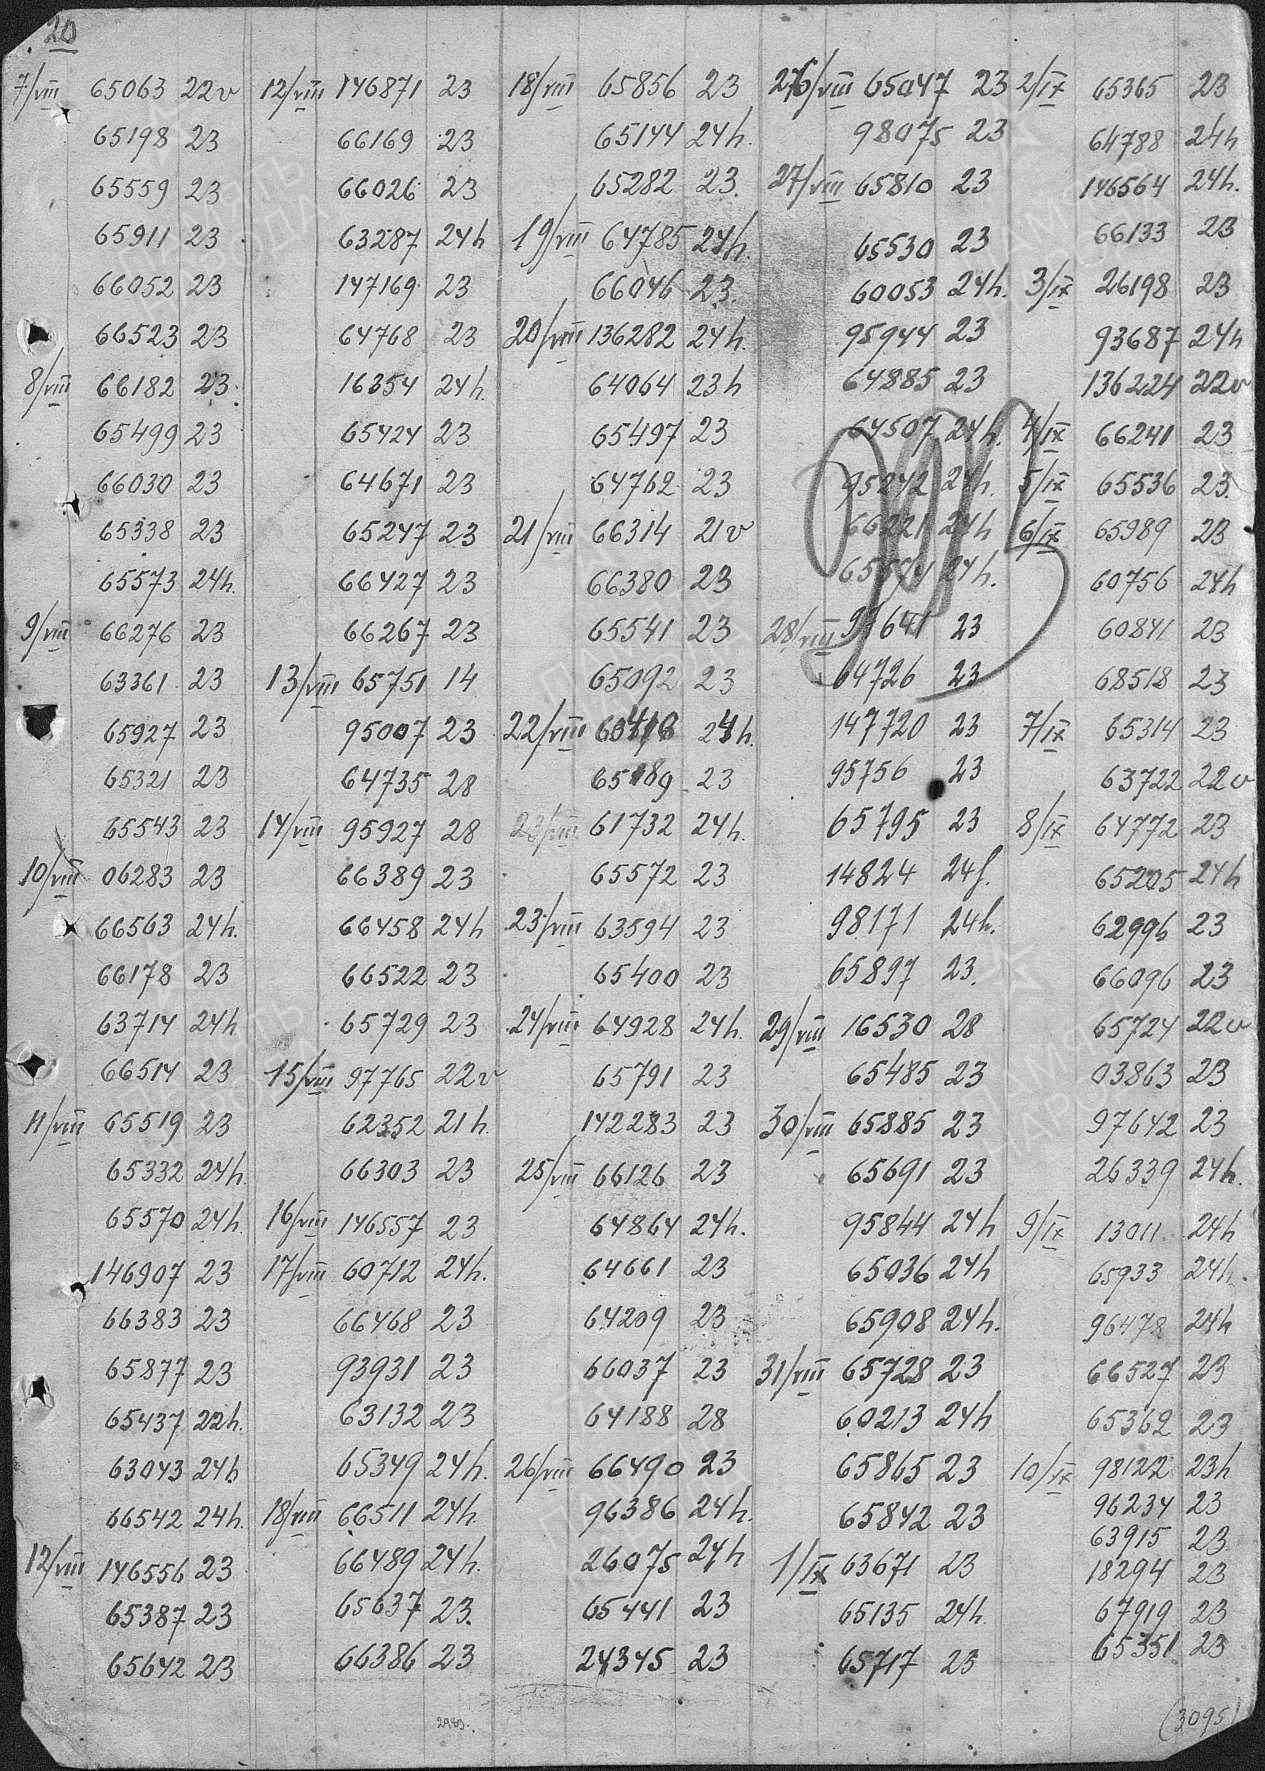 20
7/VIII 65063 22v
65198 23
65559 23
65911 23
66052 23
66523 23
8/VIII 66182 23
65499 23
66030 23
65338 23
65573 24h.
9/VIII 66276 23
63361 23
65927 23
65321 23
65543 23
10/VIII 06283 23
66563 24h.
66178 23
63714 24h
66514 23
11/VIII 65519 23
65332 24h.
65570 24h.
146907 23
66383 23
65877 23
65437 22h.
63043 24h
66542 24h.
12/VIII 146556 23
65387 23
65642 23
12/VIII 146871 23
66169 23
66026 23
63287 24h
147169 23
64768 23
16354 24h.
65424 23
64671 23
65247 23
66427 23
66267 23
13/VIII 65751 14
95007 23
64735 28
14/VIII 95927 28
66389 23
66458 24h
66522 23
65729 23
15/VIII 97765 22v
62352 21h.
66303 23
16/VIII 146557 23
17/VIII 60712 24h.
66468 23
93931 23
63132 23
65349 24h.
18/VIII 66511 24h.
66489 24h.
65637 23.
66386 23
18/VIII 65856 23
65144 24h.
65282 23.
19/VIII 64785 24h.
66046 23.
20/VIII 136282 24h.
64064 23h
65497 23
64762 23
21/VIII 66314 21v
66380 23
65541 23
65092 23
22/VIII 24h.
23
23/VIII 61732 24h.
65572 23
23/VIII 63594 23
65400 23
24/VIII 64928 24h.
65791 23
142283 23
25/VIII 66126 23
64864 24h.
64661 23
64209 23
66037 23
64188 28
26/VIII 66490 23
96386 24h.
26075 24h
65441 23
24345 23
26/VIII 65047 23
98075 23
27/VIII 65810 23
65530 23
60053 24h.
95944 23
64885 23
64507 24h.
95242 24h.
66221 24h
24h.
28/VIII 23
64726 23
147720 23
95756 23
65795 23
14824 24h.
98171 24h.
65897 23.
29/VIII 16530 28
65485 23
30/VIII 65885 23
65691 23
95844 24h
65036 24h
65908 24h.
31/VIII 65728 23
60213 24h
65865 23
65842 23
1/IX 63671 23
65135 24h.
65717 23
2/IX 65365 23
64788 24h
146564 24h.
66133 23
3/IX 26198 23
93687 24h
136224 22v
4/IX 66241 23
5/IX 65536 23.
6/IX 65989 23
60756 24h
60841 23
68518 23
7/IX 65314 23
63722 22v
8/IX 64772 23
65205 24h
62996 23
66096 23
65724 22v
03863 23
97642 23
26339 24h.
9/IX 13011 24h
65933 24h.
96478 24h
66527 23
65362 23
10/IX 98122 23h
96234 23
63915 23
18294 23
67919 23
65351 23
2983.
(3095)